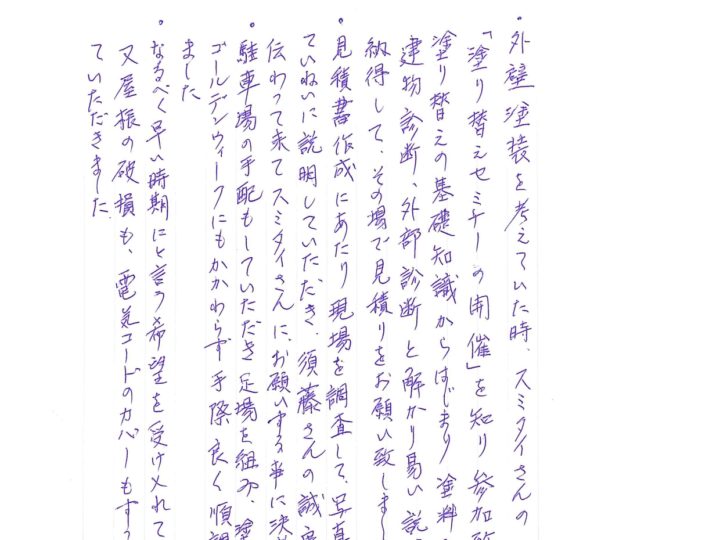 ・外壁塗装を考えていた時、スミタイさんの
「塗り替えセミナーの開催」を知り参加致
塗り替えの基礎知識からはじまり塗料
建物診断、外部診断と解かり易い説
納得して、その場で見積りをお願い致しまし
・見積書作成にあたり現場を調査して、写真
ていねいに説明していただき、須藤さんの誠実
伝わって来てスミタイさんに、お願いする事に決
・駐車場の手配もしていただき足場を組み、塗
ゴールデンウィークにもかかわらず手際良く順調
ました
・なるべく早い時期にと言う希望を受け入れて
又屋根の破損も、電気コードのカバーもすっ
ていただきました。